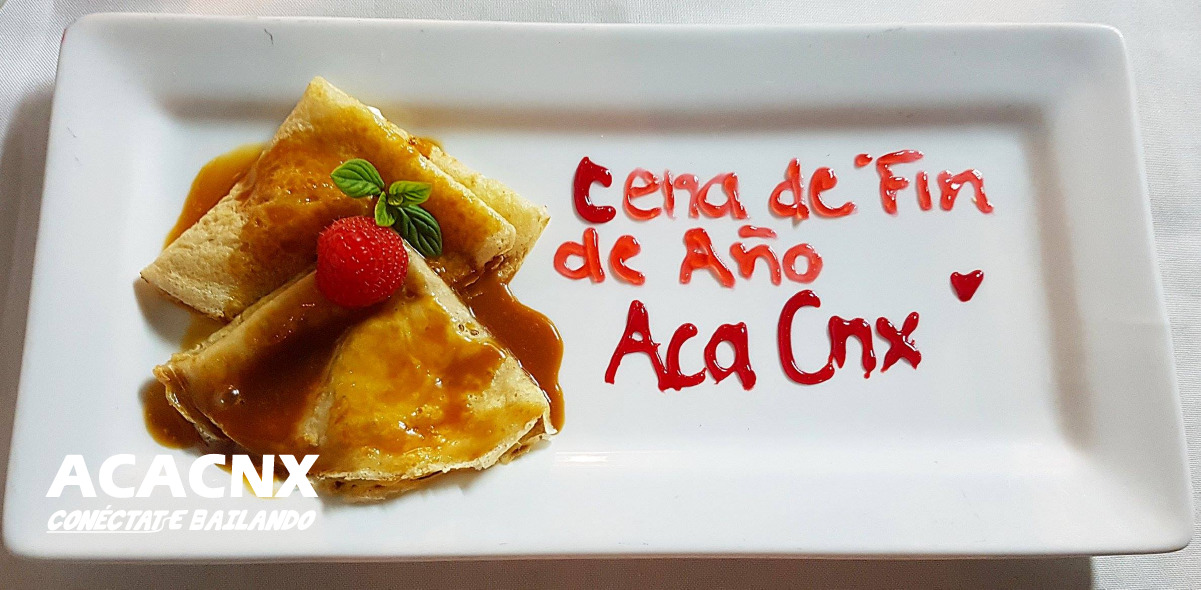 Cena de Fin
de Año
Aca Cnx
ACACNX
CONÉCTATE BAILANDO